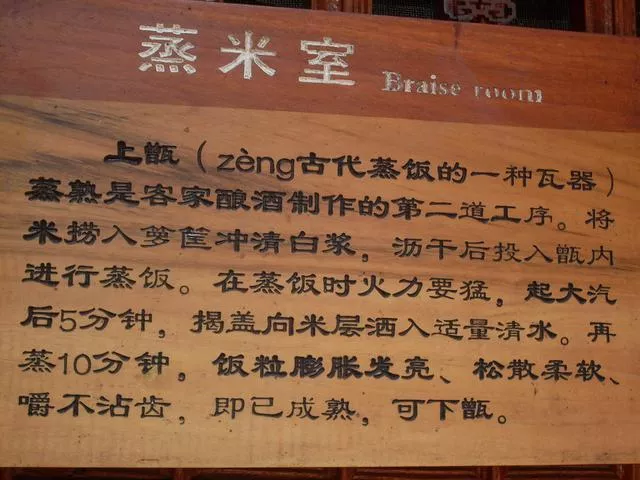 蒸米室 Braise room
上甑（zèng古代蒸饭的一种瓦器）
蒸熟是客家酿酒制作的第二道工序。将
米捞入箩筐冲清白浆，沥干后投入甑内
进行蒸饭。在蒸饭时火力要猛，起大汽
后5分钟，揭盖向米层洒入适量清水。再
蒸10分钟，饭粒膨胀发亮、松散柔软、
嚼不沾齿，即已成熟，可下甑。